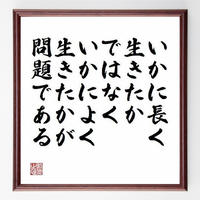 いかに長く
生きたか
ではなく
いかによく
生きたかが
問題である